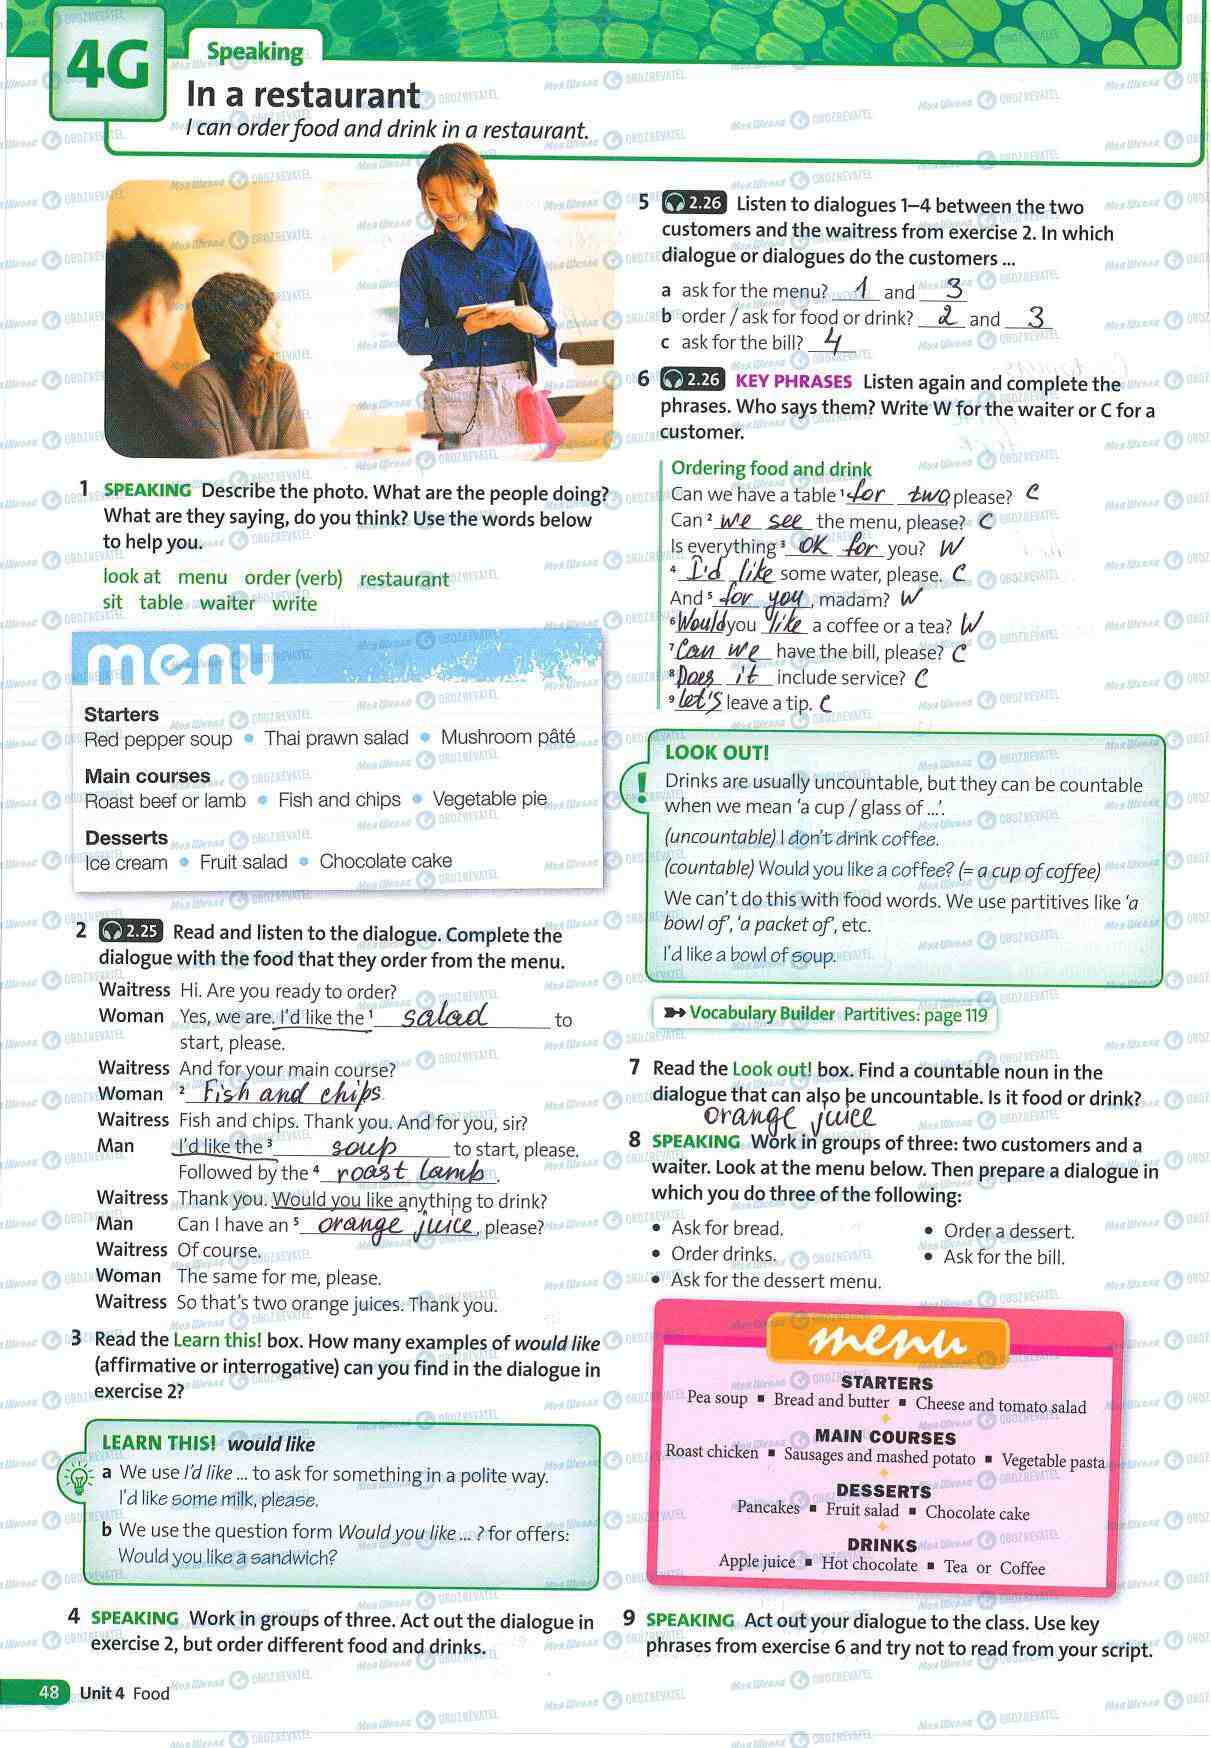 4G
Speaking
In a restaurant
I can order food and drink in a restaurant.
1 SPEAKING Describe the photo. What are the people doing?
What are they saying, do you think? Use the words below
to help you.
look at menu order (verb) restaurant
sit table waiter write
menu
Starters
Red pepper soup • Thai prawn salad • Mushroom pâté
Main courses
Roast beef or lamb • Fish and chips • Vegetable pie
Desserts
Ice cream • Fruit salad • Chocolate cake
2 2.25 Read and listen to the dialogue. Complete the
dialogue with the food that they order from the menu.
Waitress Hi. Are you ready to order?
Woman Yes, we are. I'd like the 1 salad to
start, please.
Waitress And for your main course?
Woman 2 Fish and chips.
Waitress Fish and chips. Thank you. And for you, sir?
Man I'd like the 3 soup to start, please.
Followed by the 4 roast lamb.
Waitress Thank you. Would you like anything to drink?
Man Can I have an 5 orange juice, please?
Waitress Of course.
Woman The same for me, please.
Waitress So that's two orange juices. Thank you.
3 Read the Learn this! box. How many examples of would like
(affirmative or interrogative) can you find in the dialogue in
exercise 2?
LEARN THIS! would like
a We use I'd like ... to ask for something in a polite way.
I'd like some milk, please.
b We use the question form Would you like ... ? for offers:
Would you like a sandwich?
4 SPEAKING Work in groups of three. Act out the dialogue in
exercise 2, but order different food and drinks.
48 Unit 4 Food
5 2.26 Listen to dialogues 1–4 between the two
customers and the waitress from exercise 2. In which
dialogue or dialogues do the customers ...
a ask for the menu? 1 and 3
b order / ask for food or drink? 2 and 3
c ask for the bill? 4
6 2.26 KEY PHRASES Listen again and complete the
phrases. Who says them? Write W for the waiter or C for a
customer.
Ordering food and drink
Can we have a table 1 for two, please? C
Can 2 we see the menu, please? C
Is everything 3 OK for you? W
4 I'd like some water, please. C
And 5 for you, madam? W
6 Would you like a coffee or a tea? W
7 Can we have the bill, please? C
8 Does it include service? C
9 let's leave a tip. C
LOOK OUT!
Drinks are usually uncountable, but they can be countable
when we mean 'a cup / glass of ...'.
(uncountable) I don't drink coffee.
(countable) Would you like a coffee? (= a cup of coffee)
We can't do this with food words. We use partitives like 'a
bowl of', 'a packet of', etc.
I'd like a bowl of soup.
Vocabulary Builder Partitives: page 119
7 Read the Look out! box. Find a countable noun in the
dialogue that can also be uncountable. Is it food or drink?
orange juice
8 SPEAKING Work in groups of three: two customers and a
waiter. Look at the menu below. Then prepare a dialogue in
which you do three of the following:
• Ask for bread. • Order a dessert.
• Order drinks. • Ask for the bill.
• Ask for the dessert menu.
menu
STARTERS
Pea soup ▪ Bread and butter ▪ Cheese and tomato salad
MAIN COURSES
Roast chicken ▪ Sausages and mashed potato ▪ Vegetable pasta
DESSERTS
Pancakes ▪ Fruit salad ▪ Chocolate cake
DRINKS
Apple juice ▪ Hot chocolate ▪ Tea or Coffee
9 SPEAKING Act out your dialogue to the class. Use key
phrases from exercise 6 and try not to read from your script.
Моя Школа OBOZREVATEL